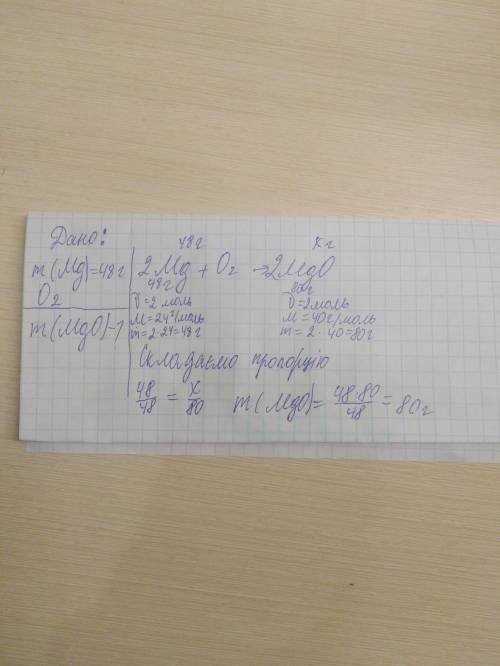 Дано:
m(Mg)=48г
O₂
m(MgO)-?
48г xг
2Mg + O₂ → 2MgO
48г 80г
ν=2 моль ν=2моль
M=24г/моль M=40г/моль
m=2·24=48г m=2·40=80г
Складаємо пропорцію
48/48 = x/80 m(MgO)= 48·80/48 = 80г